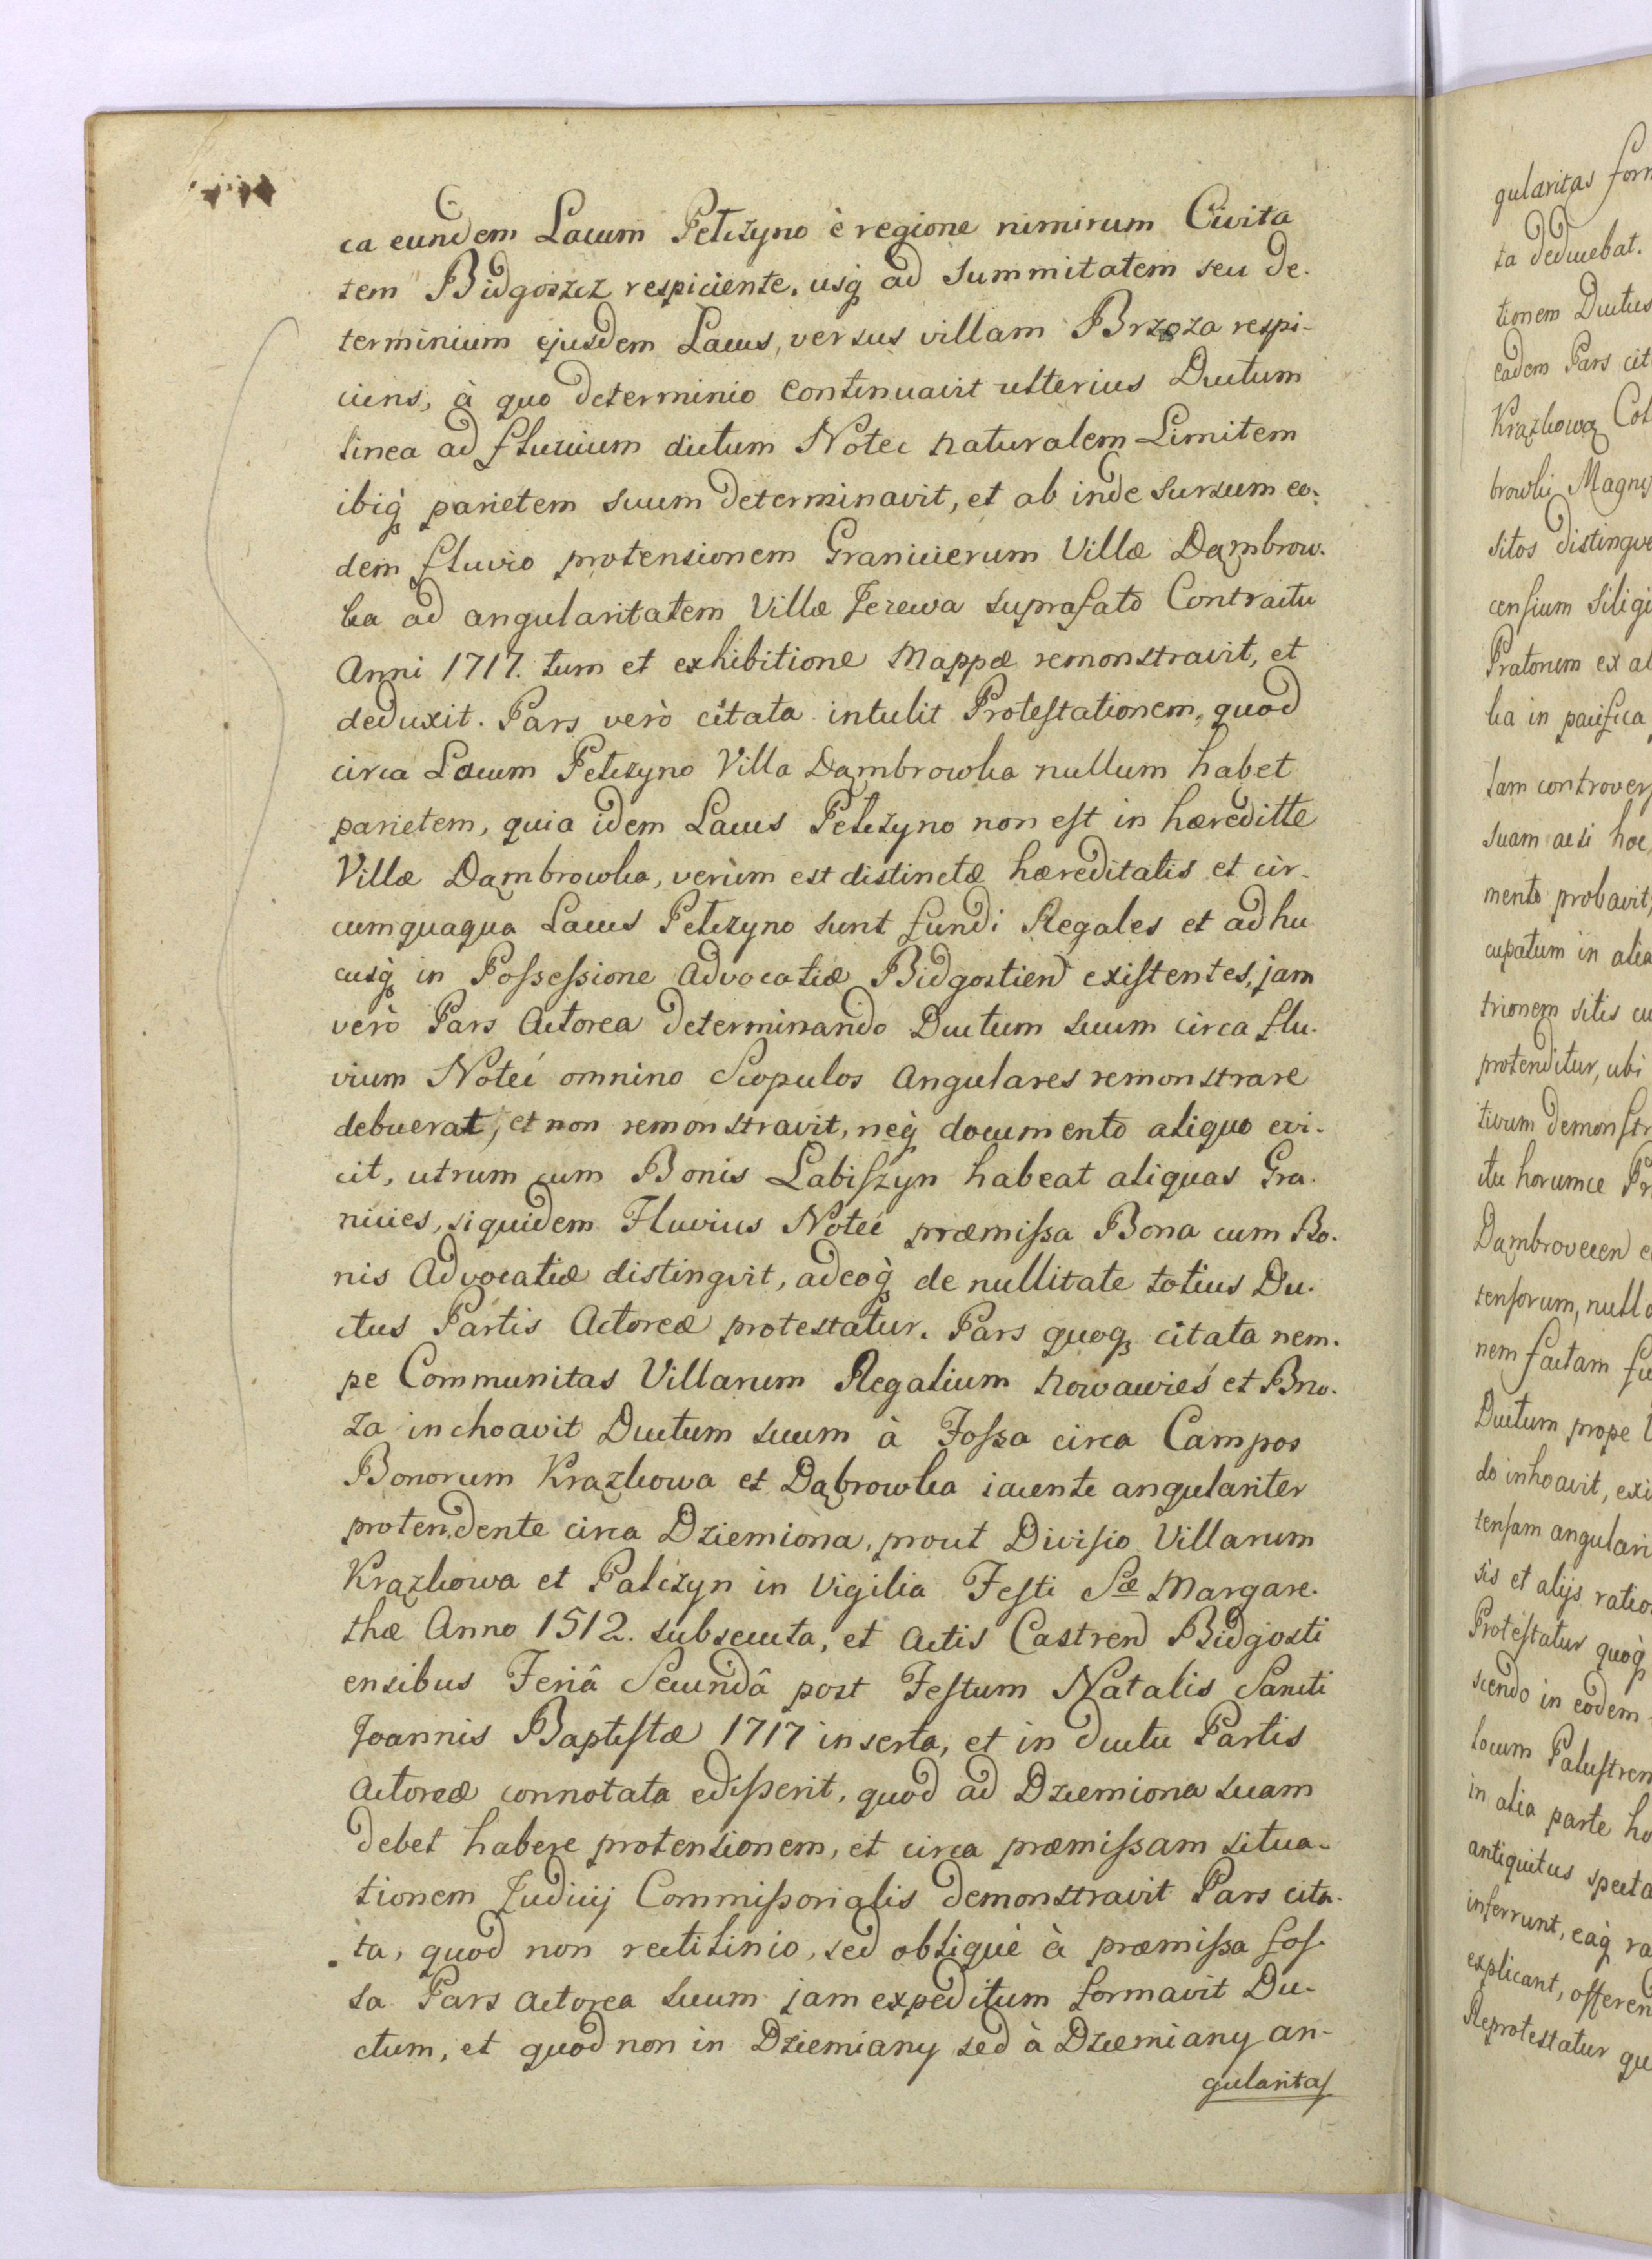 ca eundem Lacum Pelczyno è regione nimirum Civita
tem Bidgoszcz respiciente, usq̃ ad Summitatem seu de-
terminium ejusdem Lacus, versus villam Brzoza respi-
ciens, à quo determinio continuavit ulterius Ductum
linea ad fluvium dictum Notec naturalem Limitem
ibiq̃ parietem suum determinavit, et ab inde sursum eo-
dem fluvio protensionem Granicierum Villæ Dąmbrow-
ka ad angularitatem Villæ Jezewa suprafato Contractu
Anni 1717. tum et exhibitione Mappæ remonstravit, et
deduxit. Pars verò citata intulit Protestationem, quod
circa Lacum Pelczyno Villa Dąmbrowka nullum habet
parietem, quia idem Lacus Pelczyno non est in hæreditte
Villæ Dąmbrowka, verùm est distinctæ hæreditatis et cir-
cumquaqua Lacus Pelczyno sunt fundi Regales et adhu
cusq̃ in Possessione Advocatiæ Bidgostien existentes, jam
verò Pars Actorea determinando Ductum suum circa flu-
vium Noteć omnino Scopulos Angulares remonstrare
debuerat, et non remonstravit, neq̃ documento aliquo evi-
cit, utrum cum Bonis Labiszyn habeat aliquas Gra-
nicies, siquidem Fluvius Noteć præmissa Bona cum Bo-
nis Advocatiæ distingvit, adeoq̃ de nullitate totius Du-
ctus Partis Actoreæ protestatur. Pars quoq̃ citata nem-
pe Communitas Villarum Regalium Nowawieś et Brzo-
za inchoavit Ductum suum à Fossa circa Campos
Bonorum Krązkowa et Dąbrowka iacente angulariter
protendente circa Dziemiona, prout Divisio Villarum
Krązkowa et Palczyn in Vigilia Festi Sæ Margare-
thæ Anno 1512. subsecuta, et Actis Castren Bidgosti
ensibus Feriâ Secundâ post Festum Natalis Sancti
Joannis Baptistæ 1717 inserta, et in ductu Partis
Actoreæ connotata edisserit, quod ad Dziemiona suam
debet habere protensionem, et circa præmissam situa-
tionem Judicij Commissorialis demonstravit Pars cita-
ta, quod non rectilinio, sed obliquè à præmissa fos-
sa Pars Actorea suum jam expeditum formavit Du-
ctum, et quod non in Dziemiany sed à Dziemiany an-
gularitas
gularitas
ta deducebat.
tionem Ductus
eadem Pars cit
Krązkowa
browki
sitos
censium
Pratorum ex
ka in pacifica
tam
suam
mento probavit,
cupatum in
trionem sitis
protenditur, ubi
tivum
itu horumce
tensorum,
nem factam
Ductum prope
do inhoavit,
tensam
sis et alijs
Protestatur quoq̃
scendo in eodem
locum
in alia parte
antiquitus
inferrunt, eaq̃
explicant,
Reprotestatur